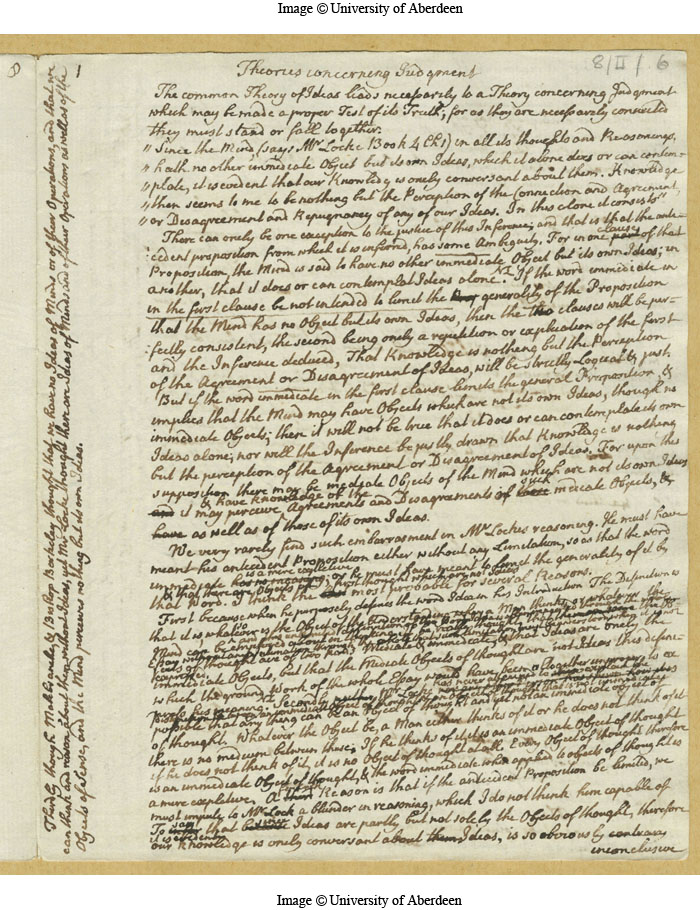 Image © University of Aberdeen
8/II/6
8
1
Theories concerning Judgment
The common Theory of Ideas leads necessarily to a Theory concerning Judgment
which may be made a proper Test of its Truth; for as they are necessarily connected
they must stand or fall together.
" Since the Mind, (says Mr Locke Book 4 Ch 1) in all its thoughts and Reasonings,
" hath no other immediate Object but its own Ideas, which it alone does or can contem-
" plate, it is evident that our Knowledg is onely conversant about them. Knowledge
" then seems to me to be nothing but the Perception of the Connection and Agreement,
" or Disagreement and Repugnancy of any of our Ideas. In this alone it consists"
There can onely be one exception to the justice of this Inference; and that is that the ante-
cedent proposition from which it is inferred, has some Ambiguity. For in one clause of that
Proposition, the Mind is said to have no other immediate Object but its own Ideas; in
another, that it does or can contemplat Ideas alone. If the word immediate in
in the first clause be not intended to limit the generality of the Proposition
that the Mind has no Object but its own Ideas, then the two clauses will be per-
fectly consistent, the second being onely a repetition or explication of the first
and the Inference deduced, That Knowledge is nothing but the Perception
of the Agreement or Disagreement of Ideas, will be strictly Logical & just.
But if the word immediate in the first clause limits the general Proposition, &
implies that the Mind may have Objects which are not its own Ideas, though no
immediate Objects; then it will not be true that it does or can contemplate its own
Ideas alone; nor will the Inference be justly drawn that Knowledge is nothing
but the perception of the Agreement or Disagreement of Ideas. For upon this
supposition there may be mediate Objects of the Mind which are not its own Ideas
& have knowledge of the
and it may perceive Agreements and Disagreements of such mediate Objects, &
have as well as of those of its own Ideas.
We very rarely find such embarrasment in Mr Lockes reasoning. He must have
meant his antecedent Proposition either without any Limitation, so as that the word
immediate is a mere expletive, or he must have meant to limit the generality of it by
that Word. I think the first most probable for several Reasons.
First because when he purposely defines the word Idea in his Introduction. The Definition is
that it is whatsoever is the Object of the Understanding when a Man thinks, or whatever the
Mind can be employed about in thinking.
immediate Objects, but that the Mediate Objects of thought are not Ideas this defini-
which the ground work of the whole Essay would have been altogether improper to ex
press his meaning. Secondly
possible that any thing can be an Object of thought and yet not an immediate object
of thought. Whatever the Object be, a Man either thinks of it or he does not think of it
there is no medium between these. If he thinks of it, it is an immediate Object of thought
if he does not think of it, it is no Object of thought at all. Every Object of thought therefore
is an immediate Object of thought, & the word immediate when applied to objects of thought is
a mere expletive. A Reason is that if the antecedent Proposition be limited, we
must impute to Mr Lock a blunder in reasoning, which I do not think him capable of
To say that Ideas are partly but not solely the Objects of thought, therefore
it is evident
our knowledge is onely conversant about Ideas, is so obviously
inconclusive
Thirdly though Malbranche & Bishop Berkeley thought that we have no Ideas of Minds or of their Operations, and that we
can think and reason about them without Ideas, yet Mr Locke thought there are Ideas of Minds and of their Operations as well as of the
Objects of sense, and the Mind perceives nothing but its own Ideas.
Image © University of Aberdeen